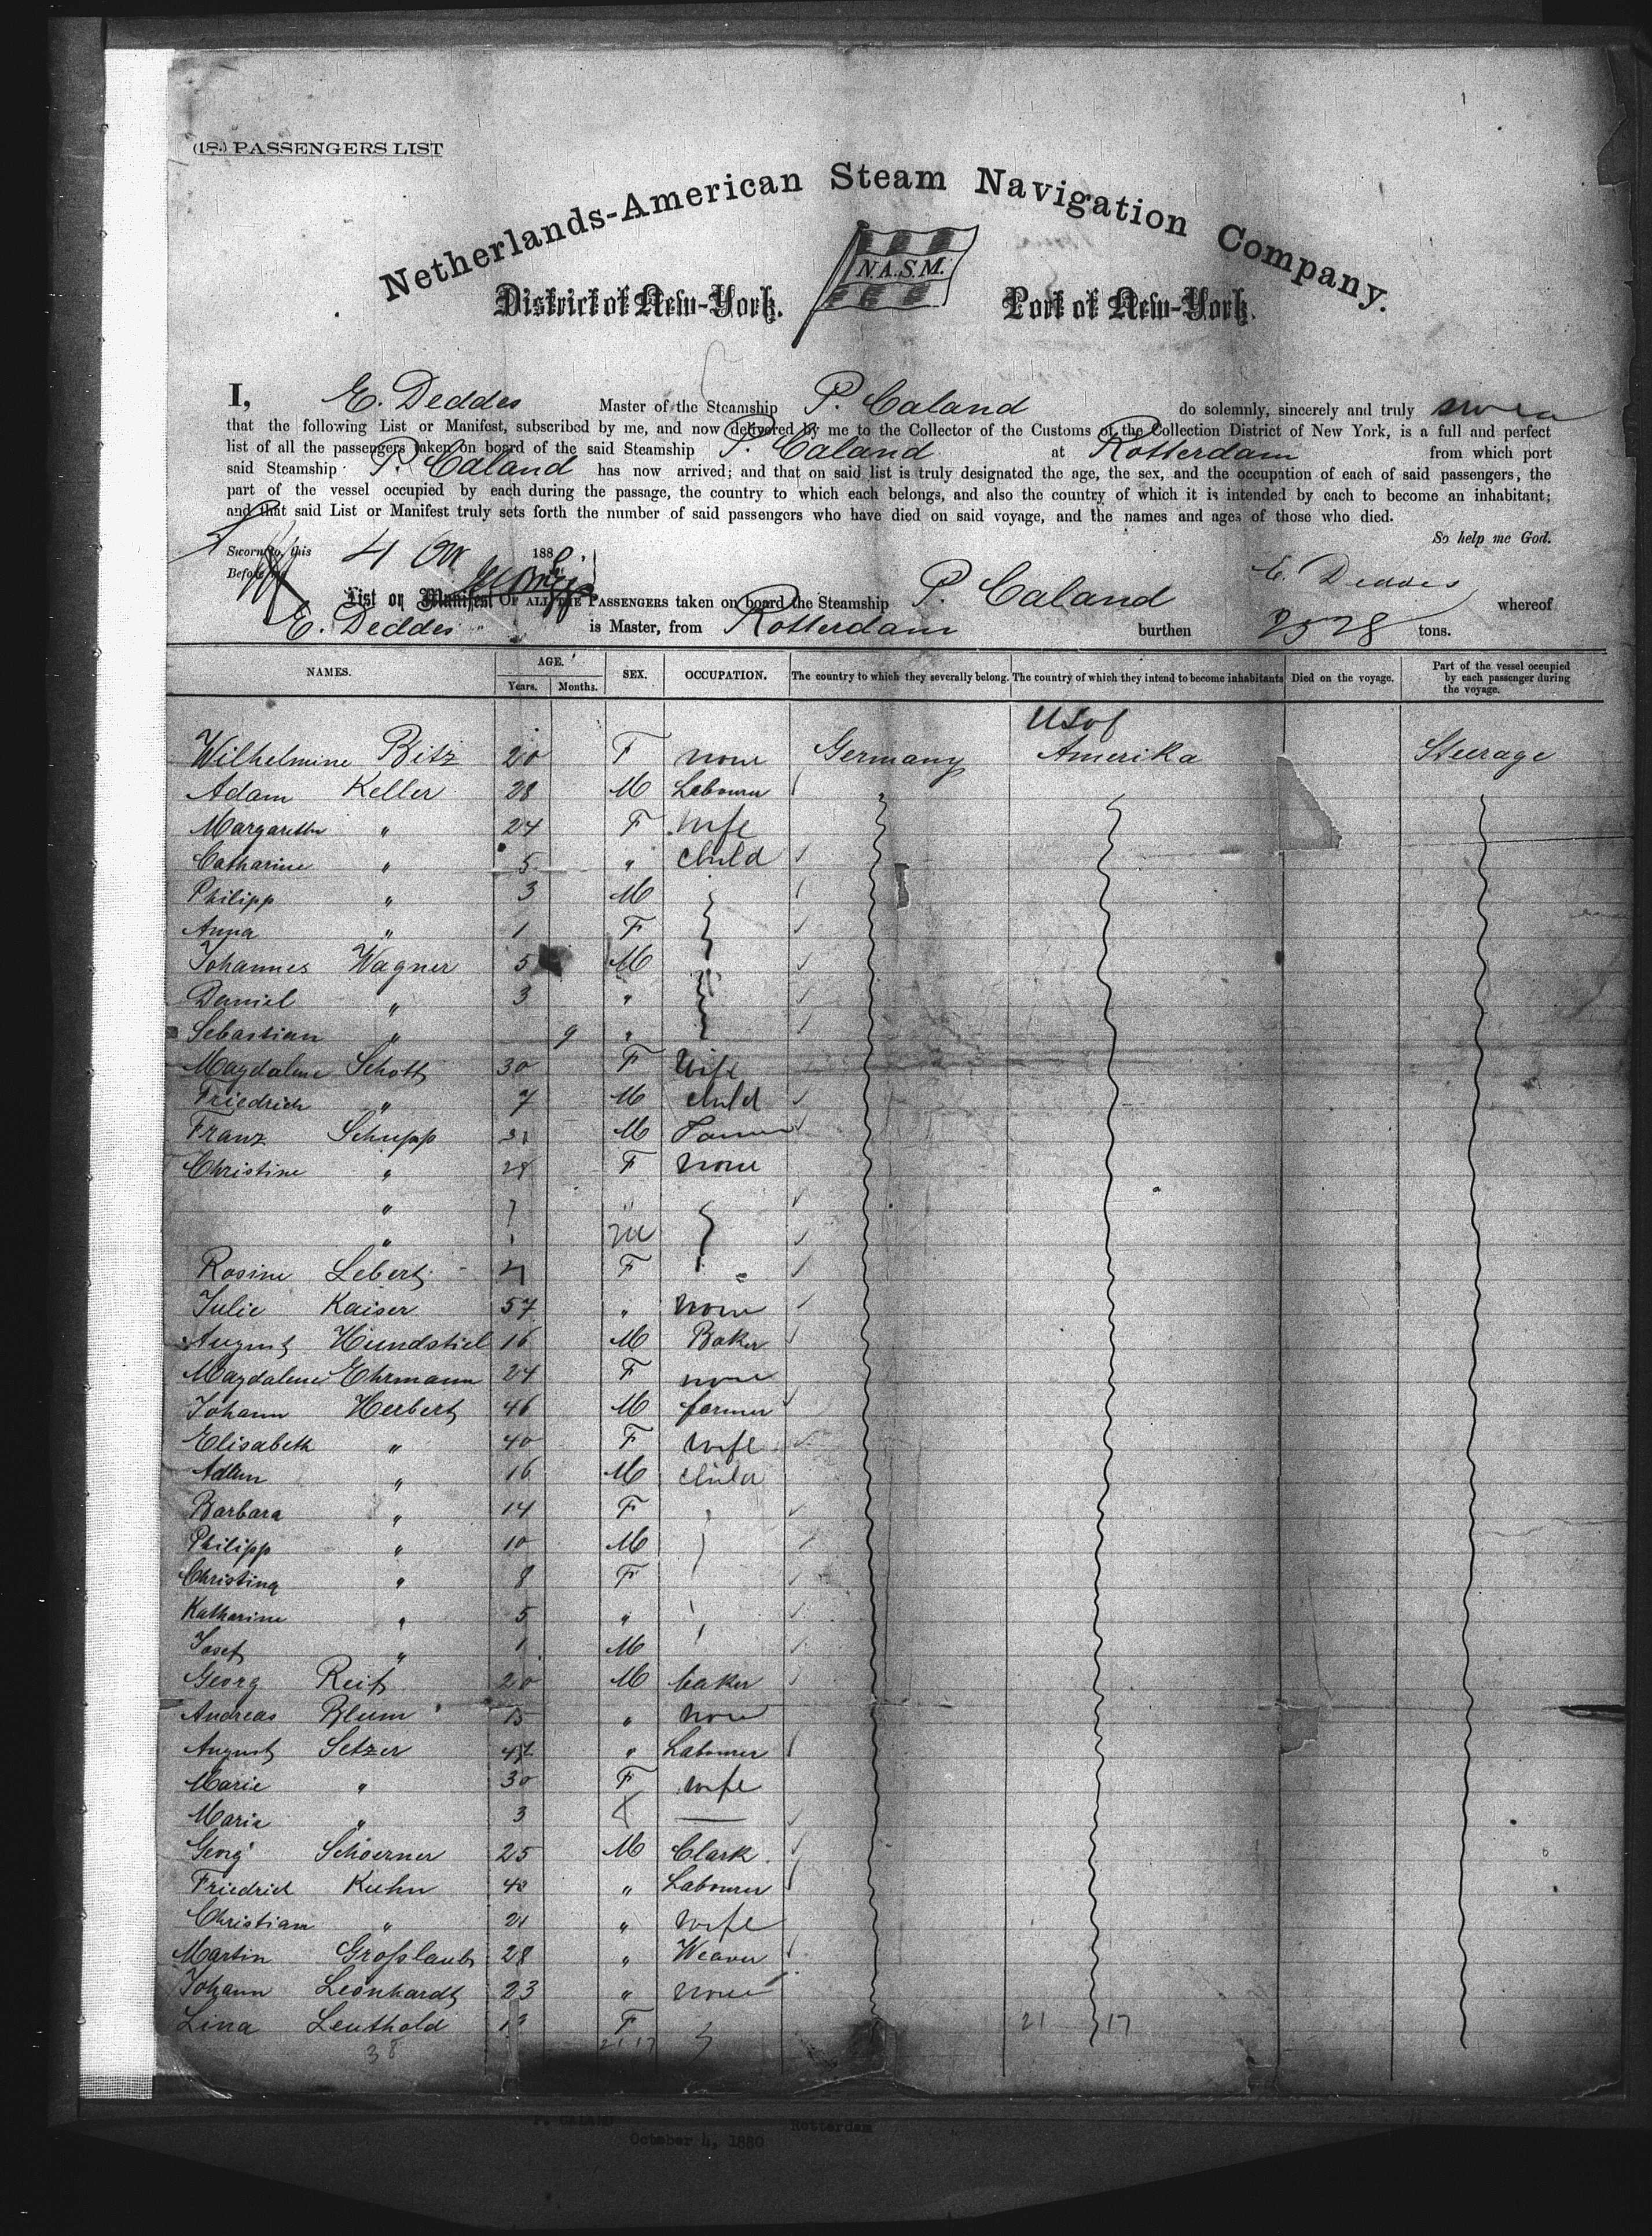 (18.) PASSENGERS LIST
Netherlands-American Steam Navigation Company.
N.A.S.M.
District of New-York. Port of New-York.
I, E. Deddes Master of the Steamship P. Caland do solemnly, sincerely and truly
that the following List or Manifest, subscribed by me, and now delivered by me to the Collector of the Customs of the Collection District of New York, is a full and perfect
list of all the passengers taken on board of the said Steamship P. Caland at Rotterdam from which port
said Steamship P. Caland has now arrived; and that on said list is truly designated the age, the sex, and the occupation of each of said passengers, the
part of the vessel occupied by each during the passage, the country to which each belongs, and also the country of which it is intended by each to become an inhabitant;
and that said List or Manifest truly sets forth the number of said passengers who have died on said voyage, and the names and ages of those who died.
So help me God.
Sworn to, this 4 1880
Before me E. Deddes
List or Manifest OF ALL THE PASSENGERS taken on board the Steamship P. Caland whereof
E. Deddes is Master, from Rotterdam burthen 2528 tons.
NAMES. AGE. Years. Months. SEX. OCCUPATION. The country to which they severally belong. The country of which they intend to become inhabitants Died on the voyage. Part of the vessel occupied by each passenger during the voyage.
US of
Wilhelmine Bitz 20 F none Germany Amerika Steerage
Adam Keller 28 M Labourer
Margarethe " 24 F wife
Catharine " 5 " child
Philipp " 3 M
Anna " 1 F
Johannes Wagner 5 M
Daniel " 3 "
Sebastian " 9 "
Magdalene Schott 30 F Wife
Friedrich " 7 M child
Franz Schupp 31 M Farmer
Christine " 28 F none
" "
" M
Rosine Lebert 21 F
Julie Kaiser 57 " none
August Hundstiel 16 M Baker
Magdalene Ehrmann 24 F none
Johann Herbert 46 M farmer
Elisabeth " 40 F wife
Adam " 16 M child
Barbara " 14 F
Philipp " 10 M
Christina " 8 F
Katharine " 5 "
Josef " 1 M
Georg Reif 20 M baker
Andreas Blum 15 " none
August Setzer 42 " Labourer
Marie " 30 F wife
Maria " 3
Georg Schoerner 25 M Clark
Friedrich Kuhn 42 " Labourer
Christian " 21 " wife
Martin Großlaub 28 " Weaver
Johann Leonhardt 23 " none
Lina Leuthold F 21 17
38 21 17
P. CALAND Rotterdam
October 4, 1880